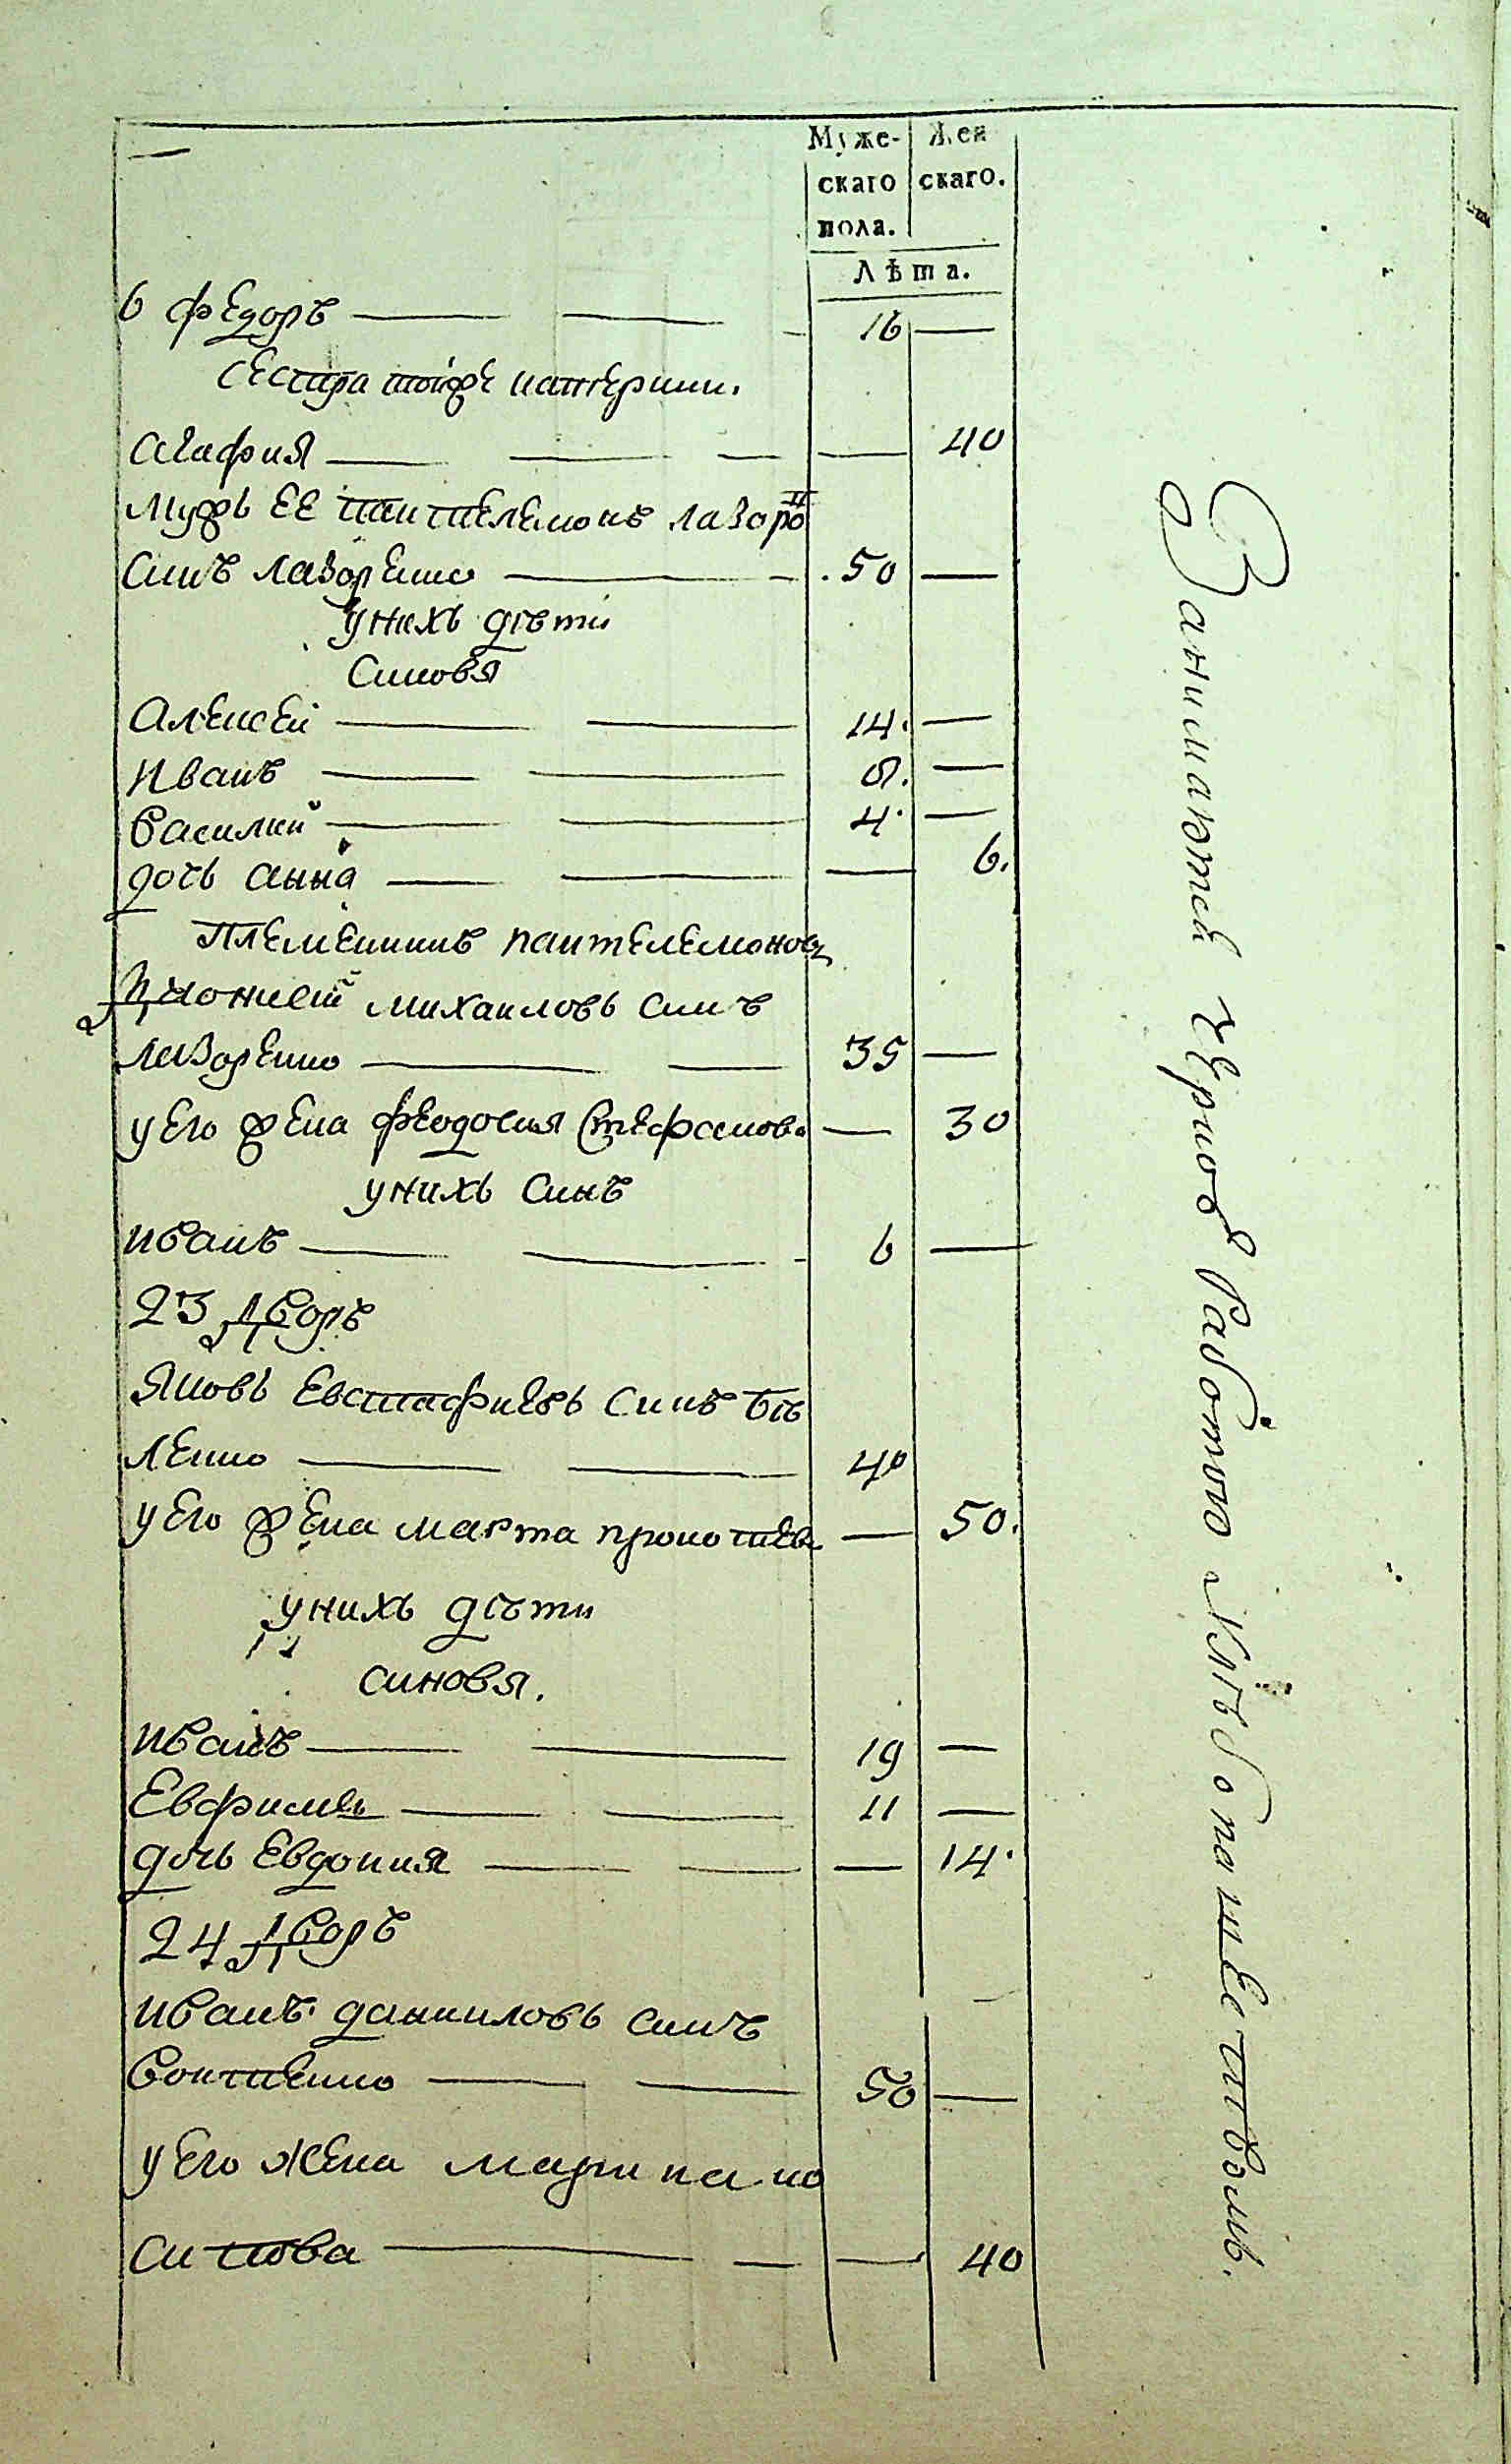 Муже- Жен
скаго скаго.
пола.
Лѣта.
6 Федоръ — — 16 —
сестра тоиже катерини.
Агафия — — — — 40
Мужъ ее пантелемонъ лазоро
Синъ лазоренко — — 50 —
унихъ дѣти
Синовя
Алексей — — 14. —
Иванъ — — 8. —
Василий — — 4. —
дочь анна — — — 6.
Племенникъ пантелемонов
Дионисий михаиловъ синъ
лазоренко — — 35 —
у его жена феодосия Стефанов. — 30
унихъ синъ
иванъ — — 6 —
23 Дворъ
Яковъ Евстафиевъ синъ бѣ
ленко — — 40
у его жена марта прокопиев — 50.
унихъ дѣти
синовя.
иванъ — — 19 —
Евфимъ — — 11 —
дочь Евдокия — — — 14.
24 Дворъ
иванъ даниловъ синъ
Воитенко — — 50 —
у его жена марина ио
сипова — — — 40
Занимаютсѧ чорною работою хлѣбопашественною.